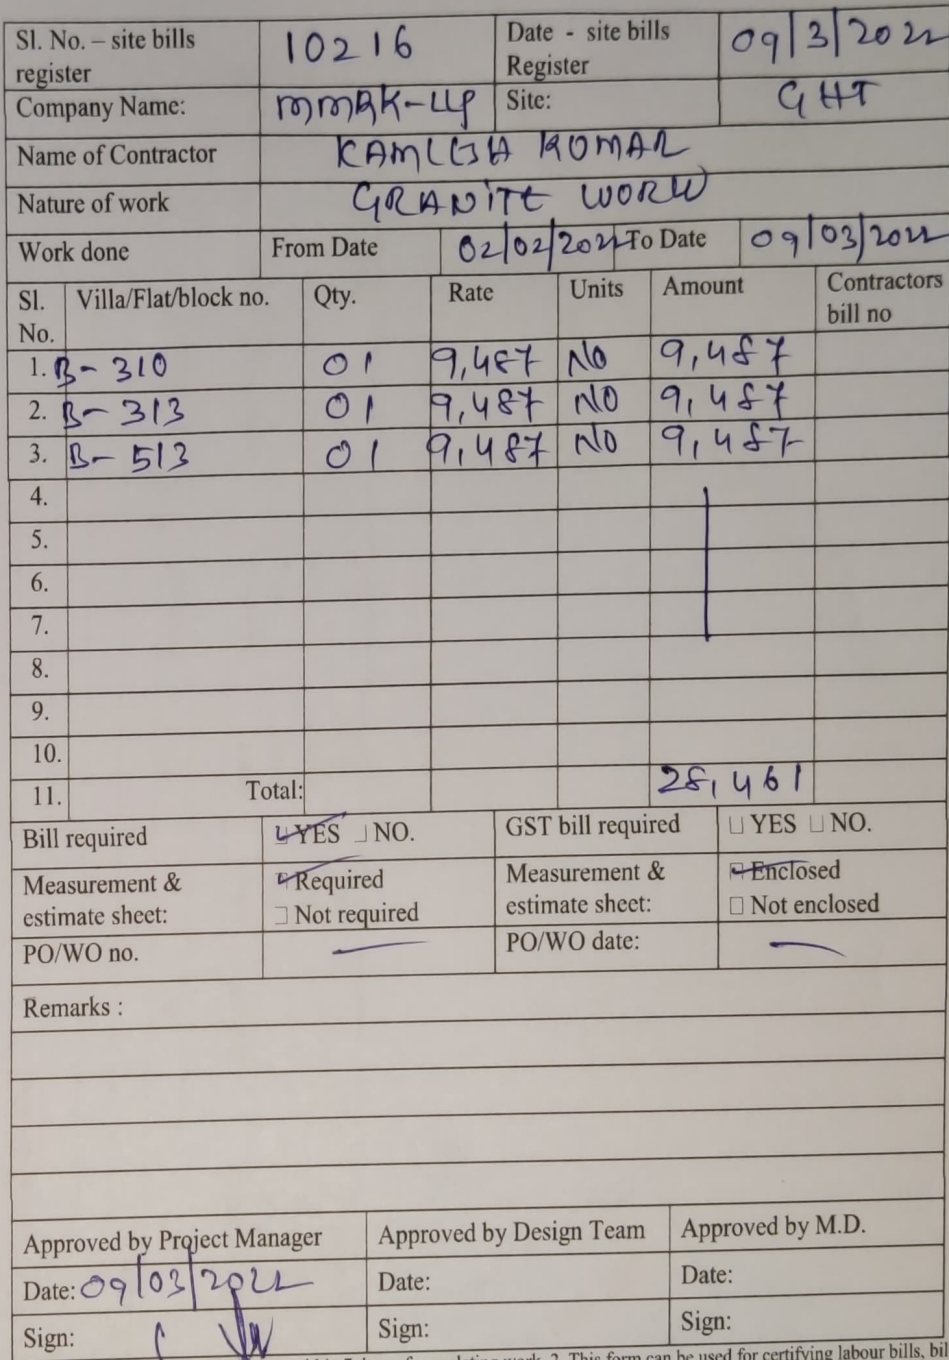 Sl. No. – site bills register 10216 Date - site bills Register 09/3/2022
Company Name: MMRK-LLP Site: GHT
Name of Contractor KAMLESH KUMAR
Nature of work GRANITE WORK
Work done From Date 02/02/2022 To Date 09/03/2022
Sl. No. Villa/Flat/block no. Qty. Rate Units Amount Contractors bill no
1. B- 310 01 9,487 NO 9,487
2. B- 313 01 9,487 NO 9,487
3. B- 513 01 9,487 NO 9,487
4.
5.
6.
7.
8.
9.
10.
11. Total: 28,461
Bill required YES NO. GST bill required YES NO.
Measurement & estimate sheet: Required Measurement & estimate sheet: Enclosed
Not required Not enclosed
PO/WO no. — PO/WO date: —
Remarks :
Approved by Project Manager Approved by Design Team Approved by M.D.
Date: 09/03/2022 Date: Date:
Sign: Sign: Sign:
2. This form can be used for certifying labour bills, bil